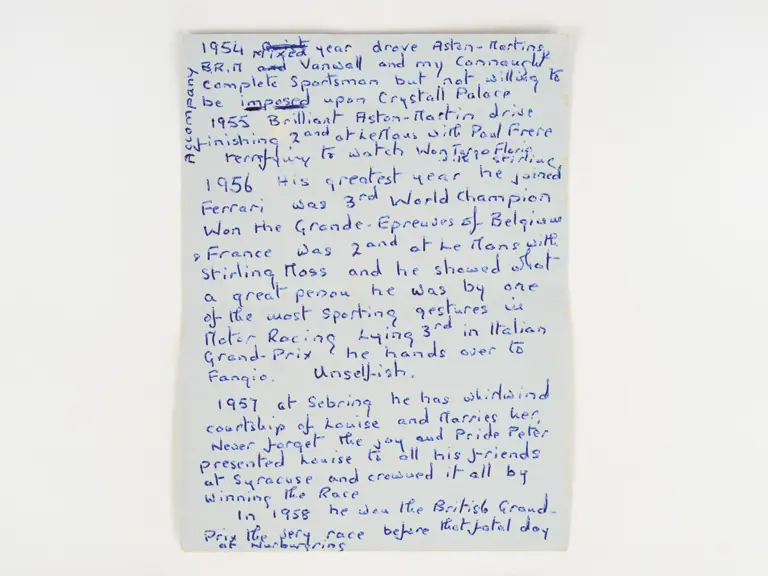 1954 Mixed year drove Aston-Martins,
B.R.M and Vanwall and my Connaught
complete Sportsman but not willing to
be imposed upon Crystall Palace
Accompany
1955 Brilliant Aston-Martin drive
finishing 2and at LeMans with Paul Frere
terrifying to watch Won Targa Florio
with stirling
1956 His greatest year he joined
Ferrari was 3rd World Champion
Won the Grande-Epreuves of Belgium
& France was 2and at Le Mans with
Stirling Moss and he showed what
a great person he was by one
of the most Sporting gestures in
Motor Racing Lying 3rd in Italian
Grand-Prix he hands over to
Fangio. Unselfish.
1957 at Sebring he has whirlwind
courtship of Louise and Marries her,
Never forget the joy and Pride Peter
presented Louise to all his friends
at Syracuse and crowned it all by
winning the Race
In 1958 he won the British Grand-
Prix the very race before that fatal day
at Nurburgring